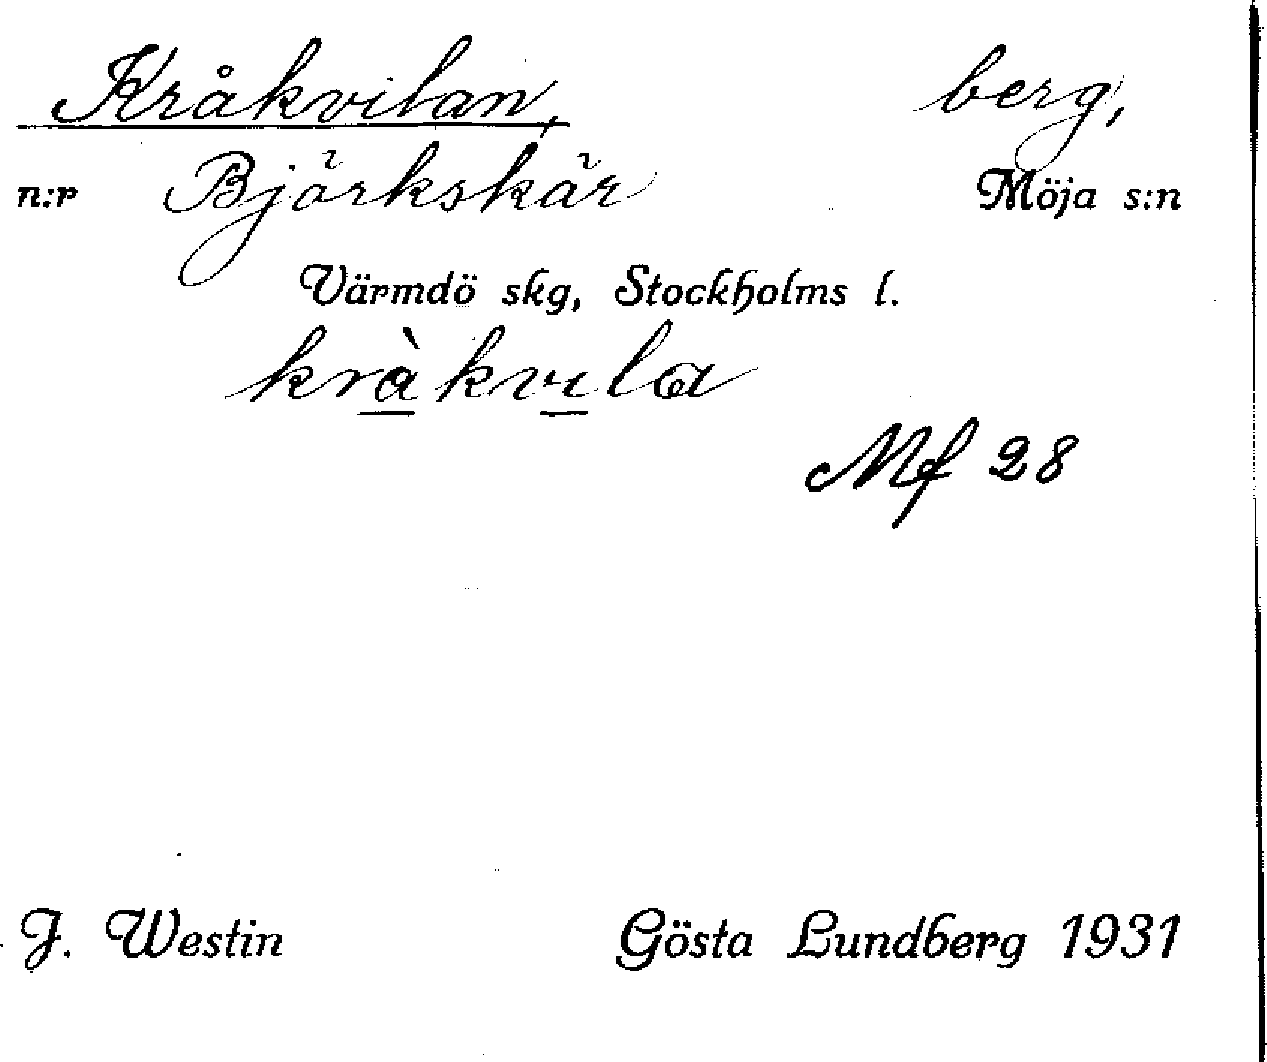 Kråkvilan, berg,
n:r Björkskär Möja s:n
Värmdö skg, Stockholms l.
kràkvıla
Mf 28
J. Westin Gösta Lundberg 1931